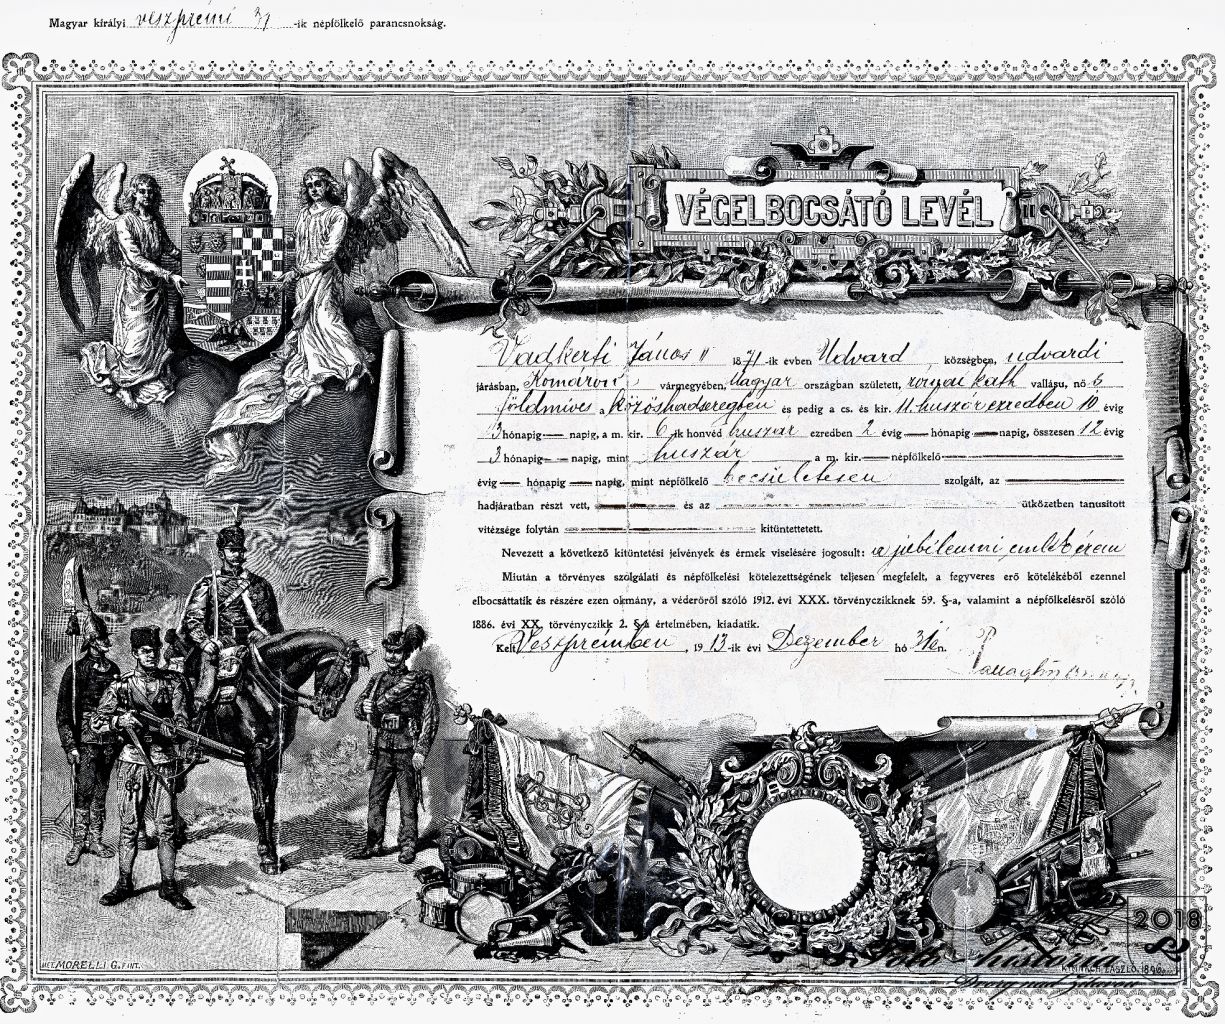 Magyar királyi veszprémi 31 -ik népfölkelő parancsnokság.
VÉGELBOCSÁTÓ LEVÉL
Vadkerti János 1871 -ik évben Udvard községben, udvardi
járásban, Komárom vármegyében, Magyar országban született, római kath vallásu, nős
földmíves a közöshadseregben és pedig a cs. és kir. 11. huszár ezredben 10 évig
3 hónapig — napig, a m. kir. 6 -ik honvéd huszár ezredben 2 évig — hónapig — napig, összesen 12 évig
3 hónapig — napig, mint huszár a m. kir. — népfölkelő
évig — hónapig — napig, mint népfölkelő becsületesen szolgált, az
hadjáratban részt vett, és az ütközetben tanusitott
vitézsége folytán kitüntettetett.
Nevezett a következő kitüntetési jelvények és érmek viselésére jogosult: a jubileumi emlékérem
Miután a törvényes szolgálati és népfölkelési kötelezettségének teljesen megfelelt, a fegyveres erő kötelékéből ezennel
elbocsáttatik és részére ezen okmány, a véderőről szóló 1912. évi XXX. törvényczikknek 59. §-a, valamint a népfölkelésről szóló
1886. évi XX. törvényczikk 2. §-a értelmében, kiadatik.
Kelt Veszprémben, 1913 -ik évi Dezember hó 31én.
MORELLI G. FINT.
LÁSZLÓ. 1896.
2018
Foto - história